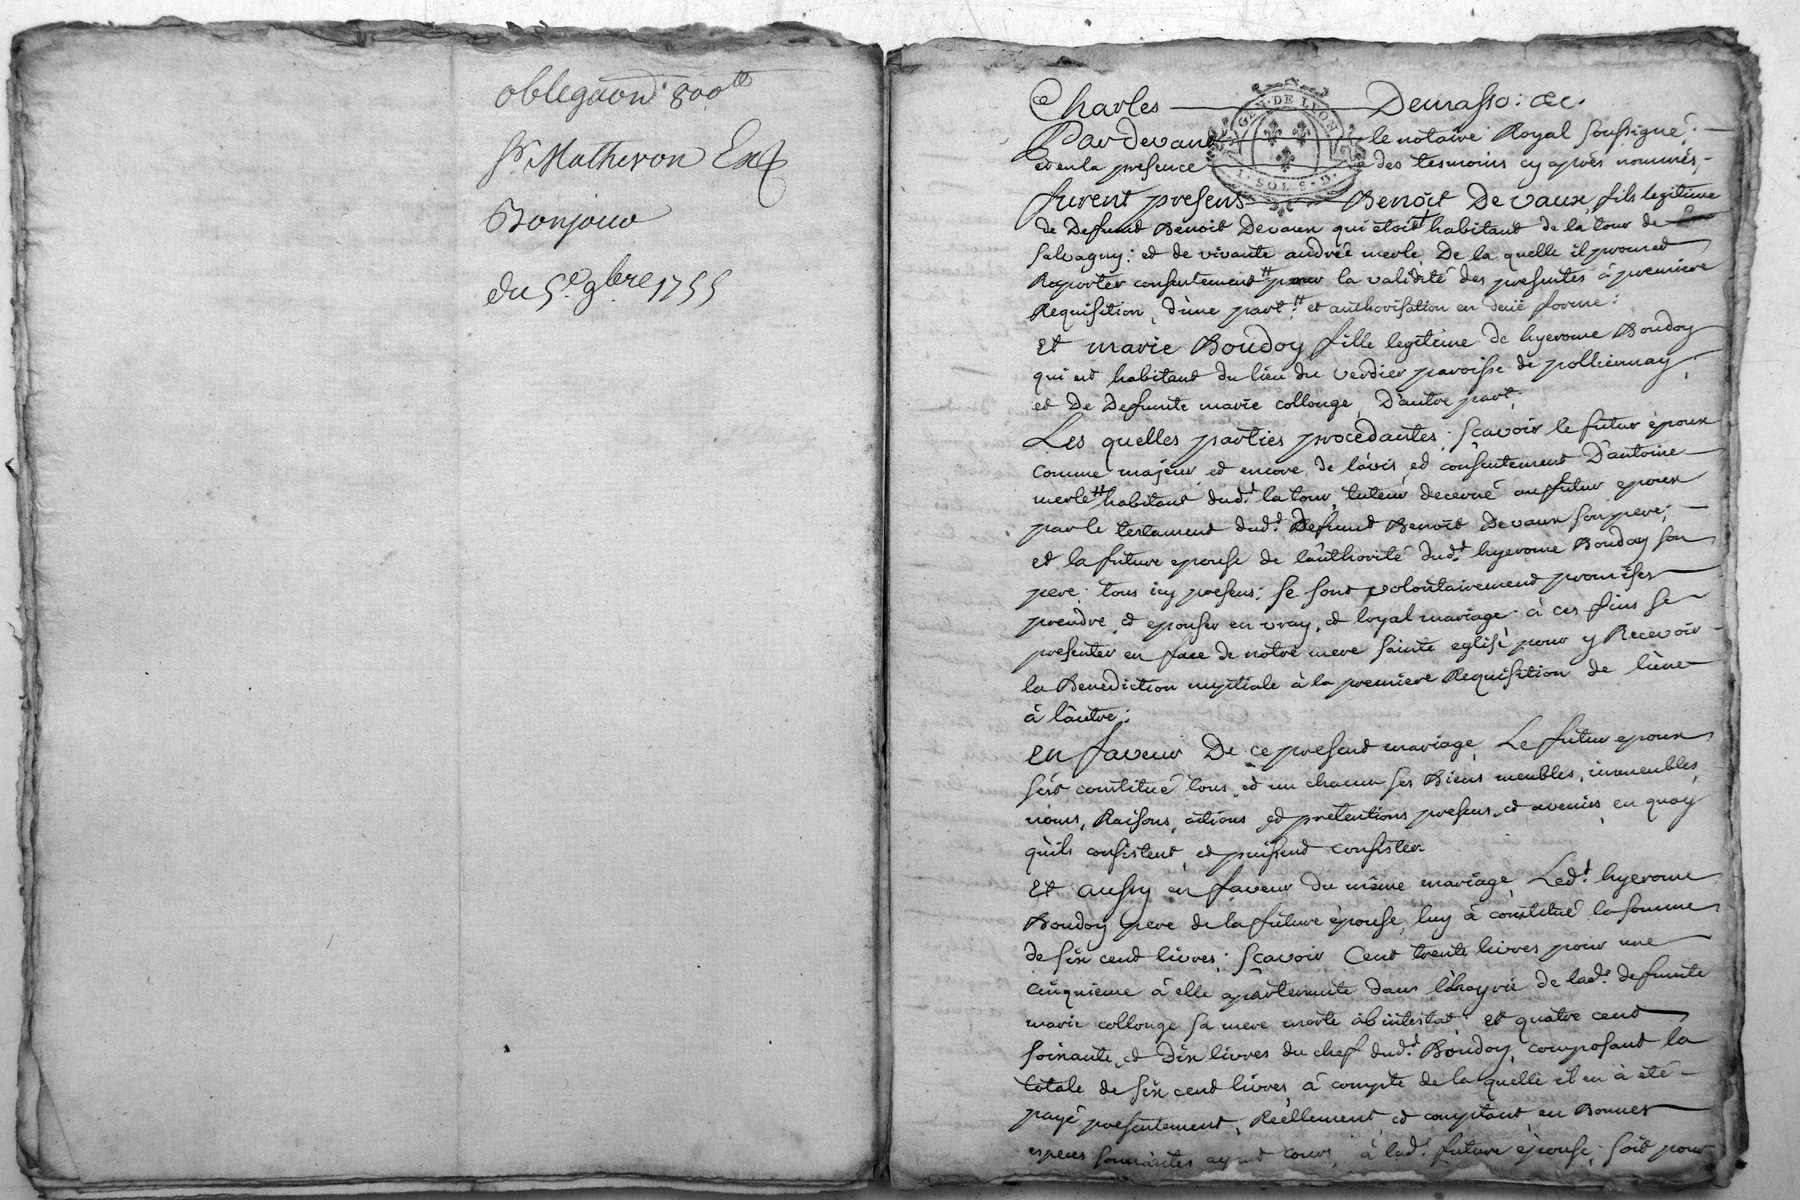 obligãon 800tt
Sr. Matheron Ext
Bonjour
du 5e. 9bre 1755
Charles Demasso: &c.
GEN. DE LYON
1. SOL 8. D.
Pardevant le notaire Royal soussigné.
et en la presence des tesmoins cy après nommés,
furent presens Benoit Devaux, fils legitime
de Defunt Benoit Devaux qui étoit habitant de la tour de
salvagny: et de vivante andrée merle, De la quelle il promet
Raporter consentement pour la validité des presentes à premiere
Requisition, d'une part. et authorisation en deüe forme:
Et marie Boudoy fille legitime de hyerome Boudoy
qui est habitant du lieu du verdier paroisse de pollionnay,
et De Defunte marie collonge, D'autre part.
Les quelles parties procedantes; sçavoir le futur époux
comme majeur, et encore de l'avis, et consentement D'antoine
merle habitant dud. la tour, tuteur decerné au futur epoux
par le testament dud. Defunt Benoit Devaux son pere;
et la future epouse de l'authorité dud. hyerome Boudoy son
pere. tous icy presens; se sont volontairement promises
prendre, et epouser en vray, et loyal mariage. à ces fins se
presenter en face de notre mere sainte eglise pour y Recevoir
la Benediction nuptiale à la premiere Requisition de l'une
à l'autre:
en faveur De ce present mariage, Le futur epoux
s'est constitué tous, et un chacun ses Biens meubles, immeubles,
noms, Raisons, actions, et pretentions presens, et avenirs, en quoy
qu'ils consistent, et puissent consister
Et aussy en faveur du même mariage, Led. hyerome
Boudoy pere de la future epouse, luy à constitué la somme
de six cent livres; sçavoir Cent trente livres pour une
cinquieme à elle apartenante dans l'hoyrie de lad. defunte
marie collonge sa mere morte ab intestat; et quatre cent
soixante, et Dix livres du chef dud. Boudoy, composant la
totale de six cent livres, à compte de la quelle il en à été
payé presentement, Réellement, et comptant, en Bonnes
especes sonnantes ayant cours, à lad. future epouse; soit pour